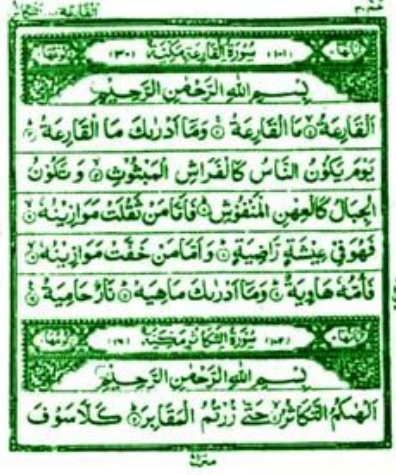 القارعة
عم ٣٠
(١٠١) سُوْرَةُ الْقَارِعَةِ مَكِّيَّةٌ (٣٠)
بِسْمِ اللّٰهِ الرَّحْمٰنِ الرَّحِيْمِ
اَلْقَارِعَةُ ۙ مَا الْقَارِعَةُ ۚ وَمَاۤ اَدْرٰىكَ مَا الْقَارِعَةُ ؕ
يَوْمَ يَكُوْنُ النَّاسُ كَالْفَرَاشِ الْمَبْثُوْثِ ۙ وَ تَكُوْنُ
الْجِبَالُ كَالْعِهْنِ الْمَنْفُوْشِ ؕ فَاَمَّا مَنْ ثَقُلَتْ مَوَازِيْنُهٗ ۙ
فَهُوَ فِيْ عِيْشَةٍ رَّاضِيَةٍ ؕ وَ اَمَّا مَنْ خَفَّتْ مَوَازِيْنُهٗ ۙ
فَاُمُّهٗ هَاوِيَةٌ ؕ وَمَاۤ اَدْرٰىكَ مَا هِيَهْ ؕ نَارٌ حَامِيَةٌ
(١٠٢) سُوْرَةُ التَّكَاثُرِ مَكِّيَّةٌ (١٦)
بِسْمِ اللّٰهِ الرَّحْمٰنِ الرَّحِيْمِ
اَلْهٰىكُمُ التَّكَاثُرُ ۙ حَتّٰى زُرْتُمُ الْمَقَابِرَ ؕ كَلَّا سَوْفَ